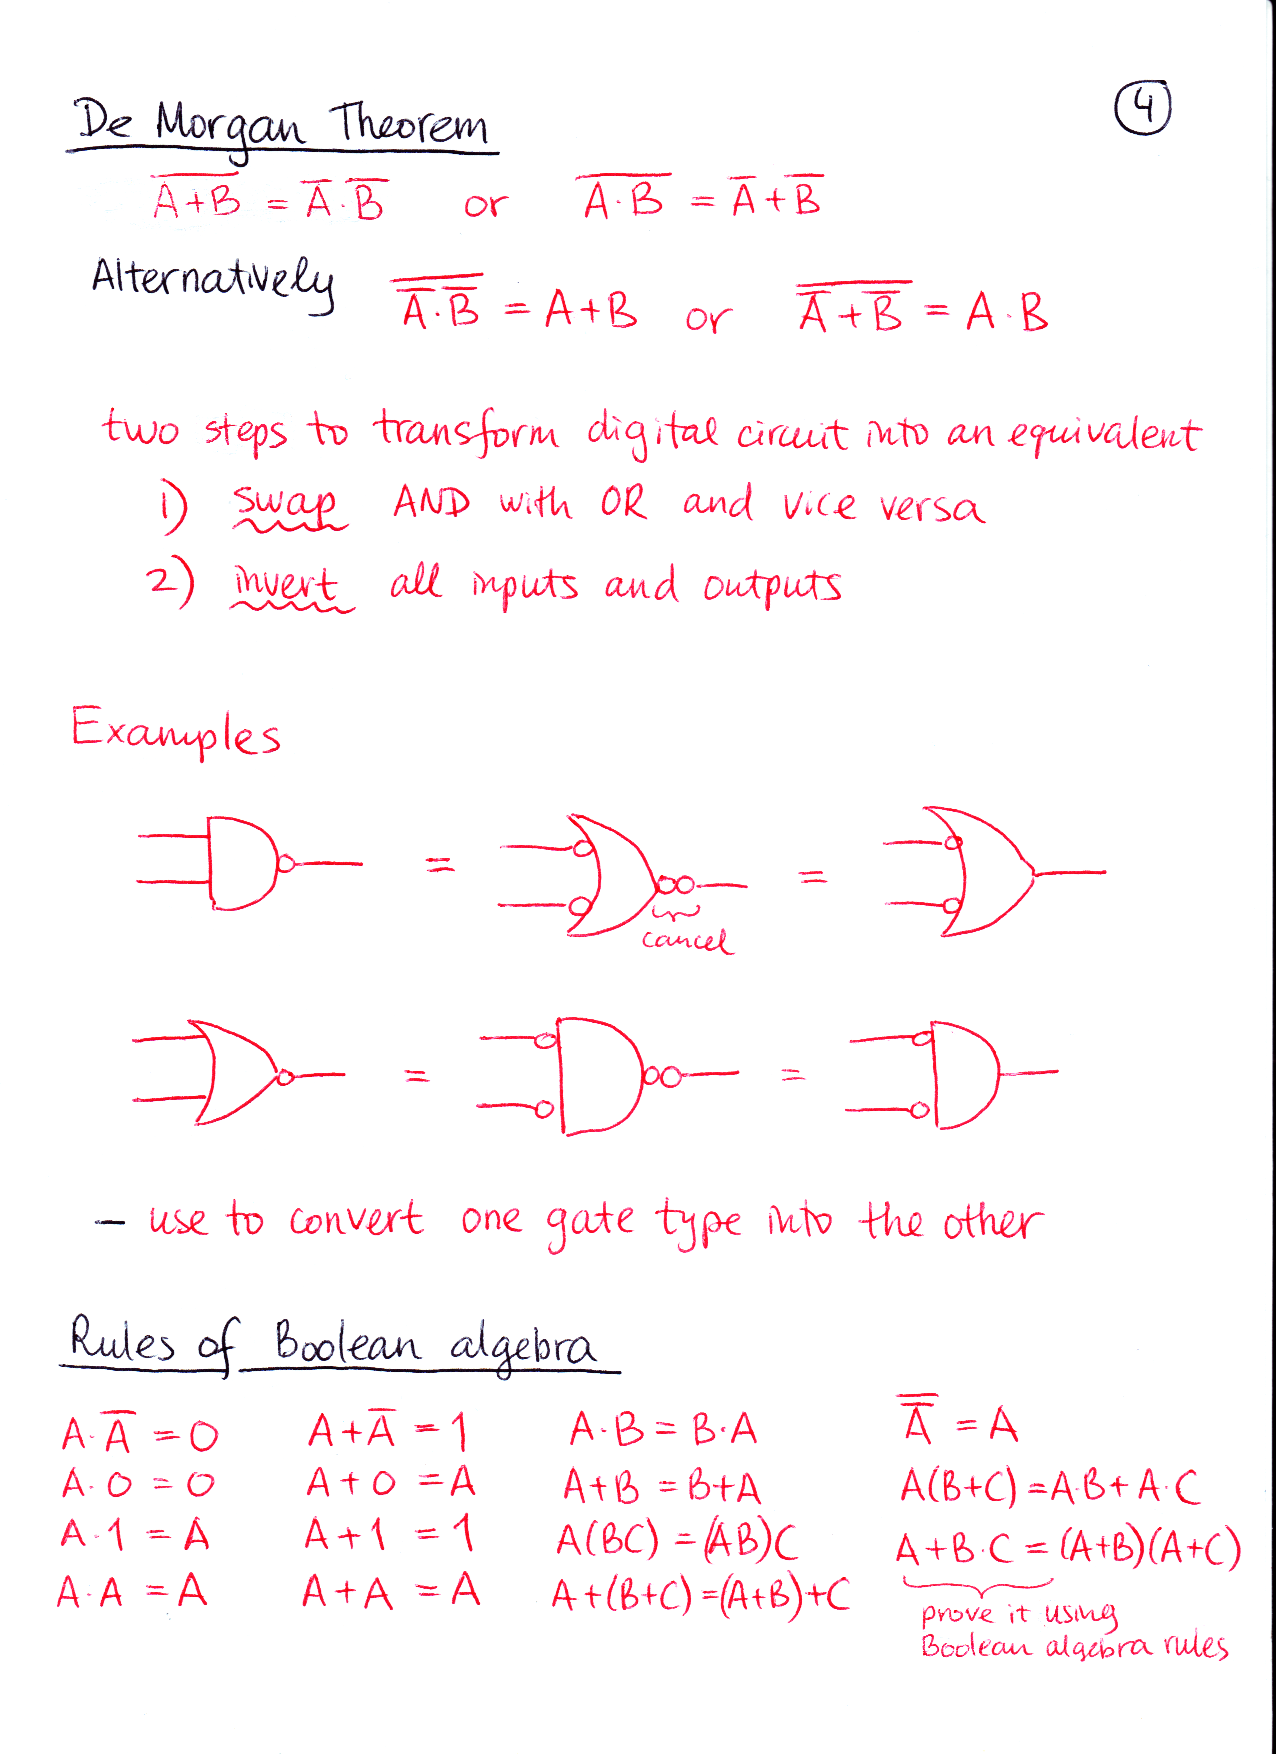 ④
De Morgan Theorem
A̅+̅B̅ = A̅·B̅ or A̅·̅B̅ = A̅+B̅
Alternatively \overline{A̅·B̅} = A+B or \overline{A̅+B̅} = A·B
two steps to transform digital circuit into an equivalent
1) swap AND with OR and vice versa
2) invert all inputs and outputs
Examples
= =
cancel
= =
– use to convert one gate type into the other
Rules of Boolean algebra
A·A̅ = 0 A+A̅ = 1 A·B = B·A \overline{A̅} = A
A·0 = 0 A+0 = A A+B = B+A A(B+C) = A·B + A·C
A·1 = A A+1 = 1 A(BC) = (AB)C A+B·C = (A+B)(A+C)
A·A = A A+A = A A+(B+C) = (A+B)+C
prove it using
Boolean algebra rules